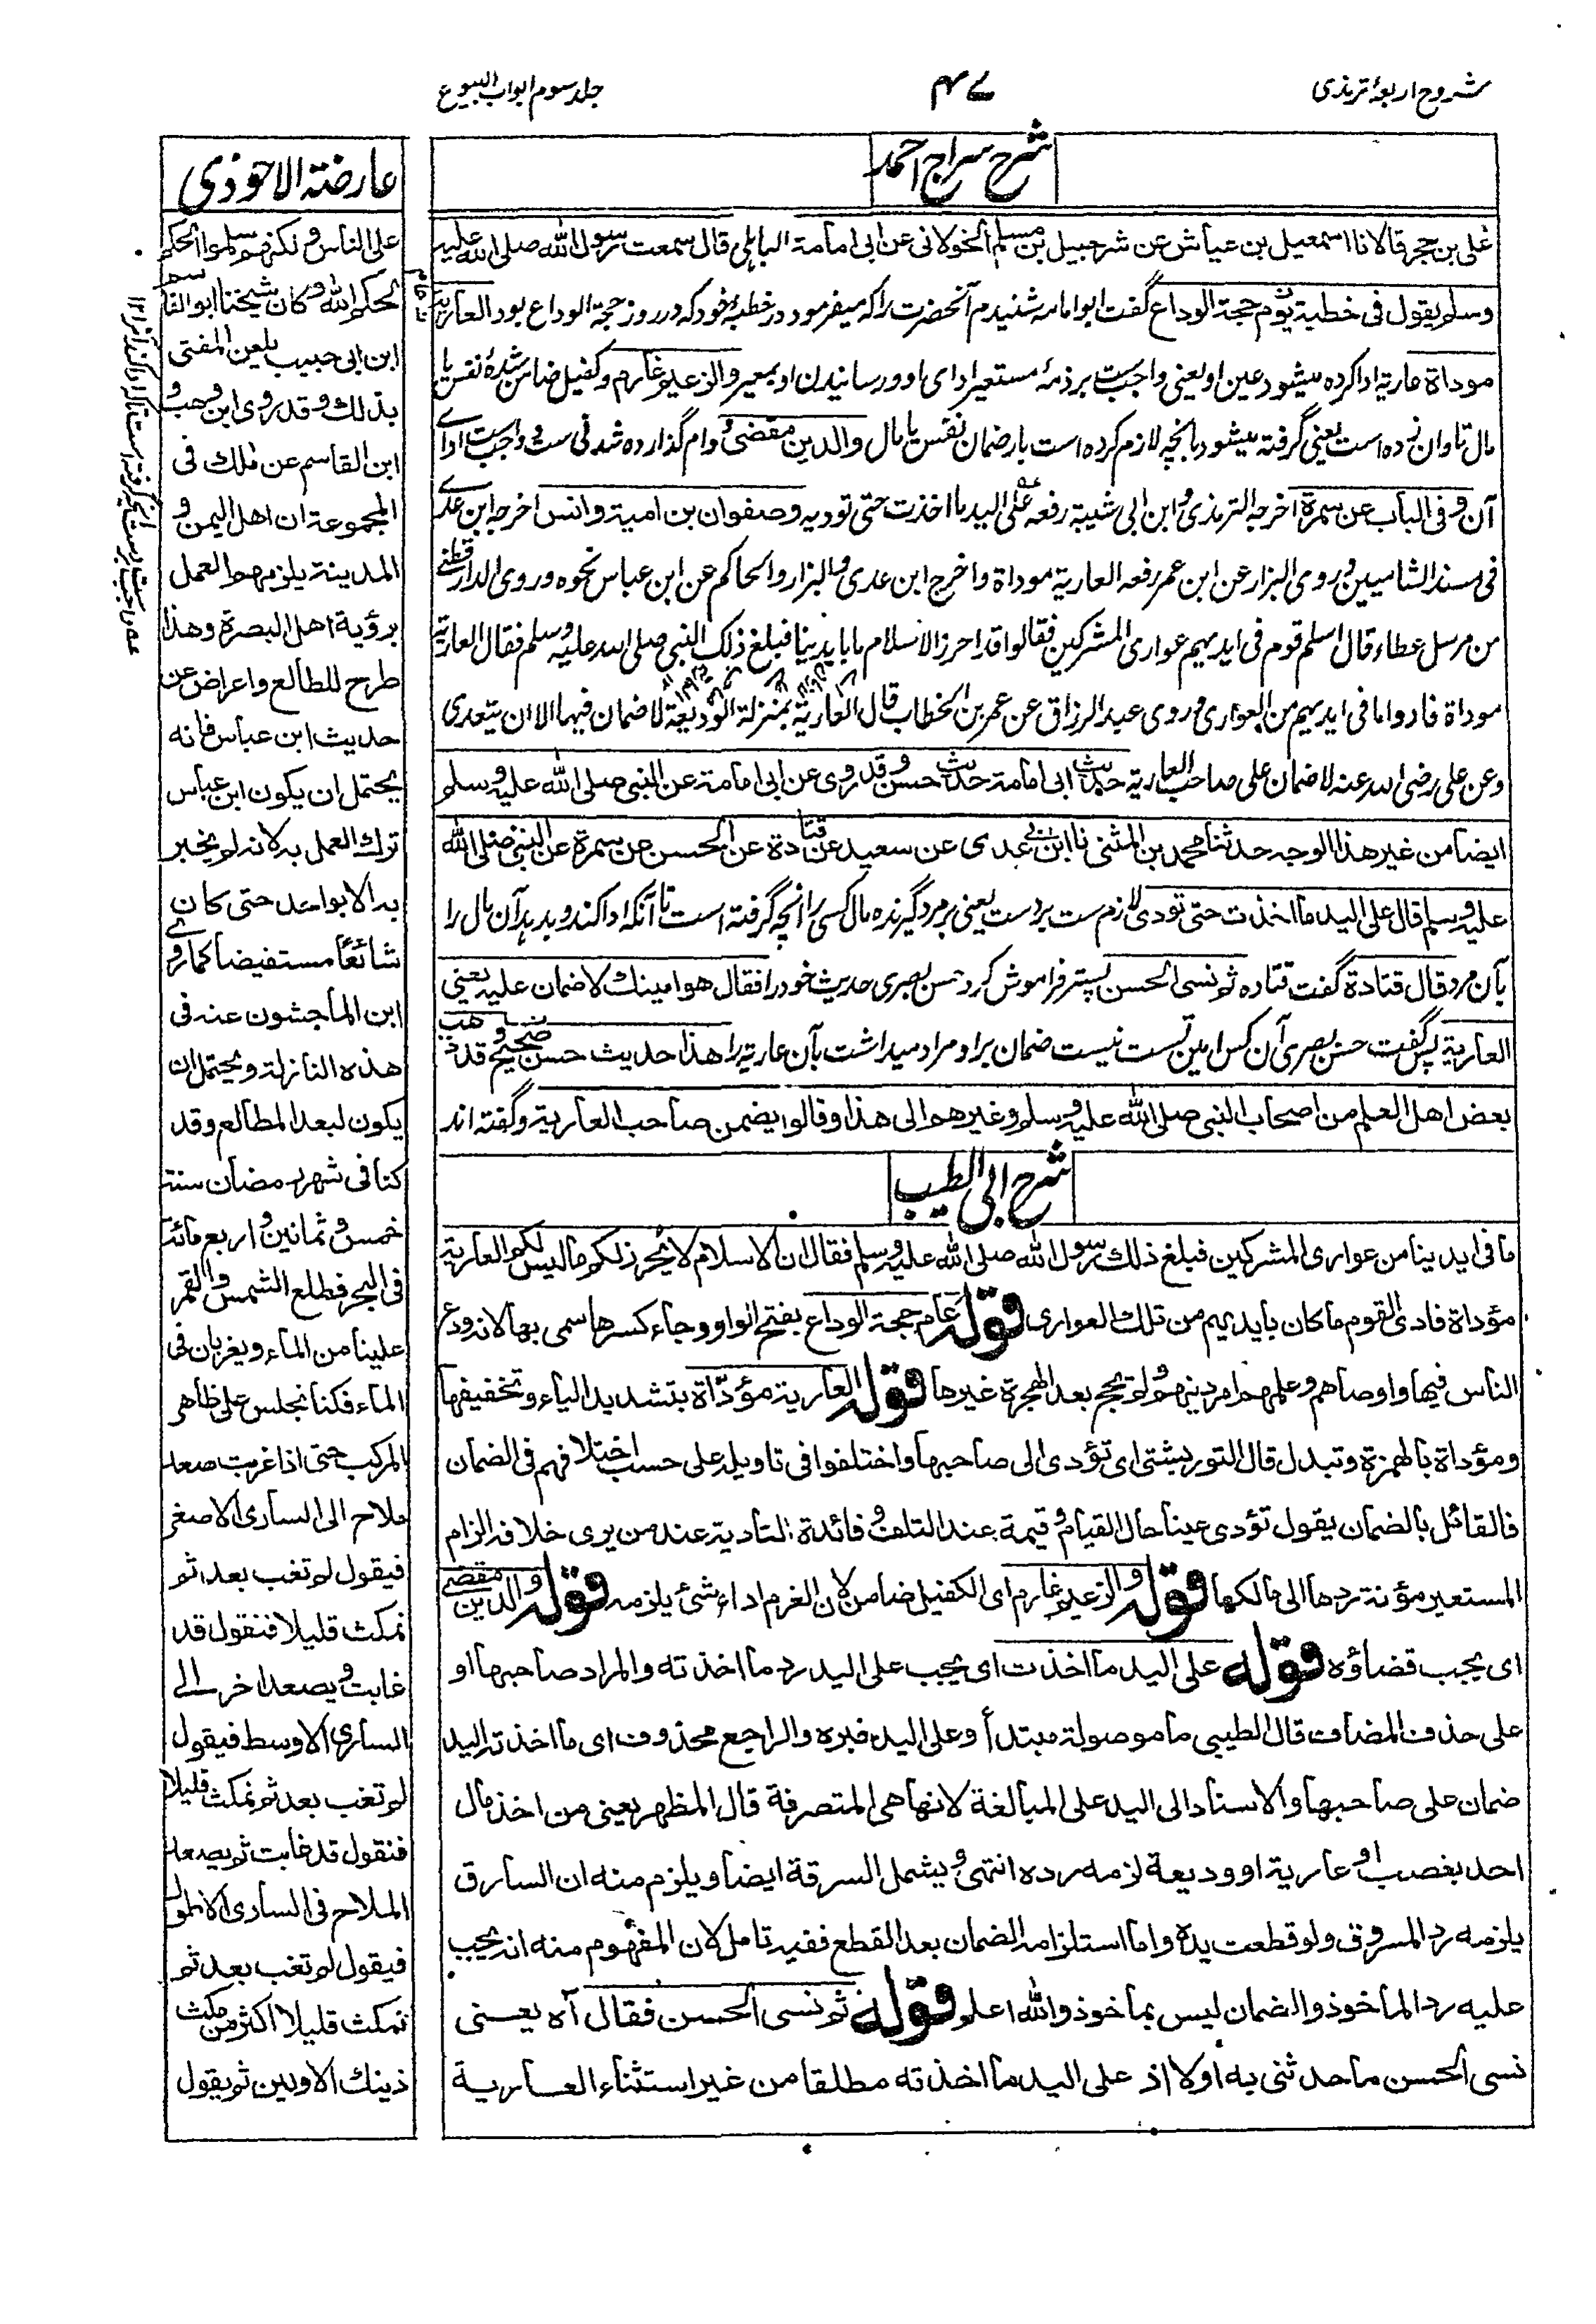 شروح اربعۂ ترمذی
۴۷
جلد سوم ابواب البیوع
شرح سراج احمد
علی بن حجر قالا نا اسمعیل بن عیاش عن شرحبیل بن مسلم الخولانی عن ابی امامة الباہلی قال سمعت رسول الله صلی الله علیه
وسلم یقول فی خطبة یوم حجة الوداع گفت ابوامامہ شنیدم آنحضرت راکہ میفرمود در خطبۂ خود کہ در روز حجة الوداع بود العاریة
موداة عاریۃ ادا کردہ میشود عین او یعنی واجبست بر ذمۂ مستعیر ادای او ورسانیدن او بمعیر والزعیم غارم وکفیل ضامن شدۂ نفس یا
مال تاوان زدہ است یعنی گرفتہ میشود بانچہ لازم کردہ است بار ضمان نفس یا مال والدین مقضی ووام گذاردہ شدنی ست وواجب است اداے
آن وفی الباب عن سمرة اخرجہ الترمذی وابن ابی شیبة رفعہ علی الید ما اخذت حتی تودیہ وصفوان بن امیة وانس اخرجہ ابن عدے
فی مسند الشامیین وروی البزار عن ابن عمر رفعہ العاریة موداة واخرج ابن عدی والبزار والحاکم عن ابن عباس نحوہ وروی الدارقطنے
من مرسل عطاء قال اسلم قوم فی ایدیہم عواری المشرکین فقالوا قد احرز الاسلام ما بایدینا فبلغ ذلک النبی صلی اللہ علیہ وسلم فقال العاریة
موداة فادوا ما فی ایدیہم من العواری وروی عبد الرزاق عن عمر بن الخطاب قال العاریة بمنزلة الودیعة لا ضمان فیہا الا ان یتعدی
وعن علی رضی اللہ عنہ لا ضمان علی صاحب العاریة حدیث ابی امامة حدیث حسن وقد روی عن ابی امامة عن النبی صلی الله علیہ وسلم
ایضا من غیر هذا الوجہ حدثنا محمد بن المثنی نا ابن ابی عدی عن سعید عن قتادة عن الحسن عن سمرة عن النبی صلی الله
علیه وسلم قال علی الید ما اخذت حتی تودی لازم ست بردست یعنی بر مرد گیرندہ مال کسی را انچہ گرفتہ است تا آنکہ ادا کند وبدہد آن مال را
بآن مرد قال قتادة گفت قتادہ ثم نسی الحسن پستر فراموش کرد حسن بصری حدیث خود را فقال هو امینک لا ضمان علیہ یعنی
العاریة پس گفت حسن بصری آن کس امین تست نیست ضمان براو مراد میداشت بآن عاریة را هذا حدیث حسن صحیح وقد ذهب
بعض اهل العلم من اصحاب النبی صلی الله علیہ وسلم وغیرهم الی هذا وقالوا یضمن صاحب العاریة وگفتہ اند
شرح ابی الطیب
ما فی ایدینا من عواری المشرکین فبلغ ذلک رسول الله صلی الله علیہ وسلم فقال ان الاسلام لا یحرز لکم ما لیس لکم العاریة
مؤداة فادی القوم ما کان بایدیہم من تلک العواری قوله عام حجة الوداع بفتح الواو وجاء کسرها سمی بها لانہ ودع
الناس فیها واوصاهم وعلمهم امر دینهم ولم یحج بعد الهجرة غیرها قوله العاریة مؤدّاة بتشدید الیاء وتخفیفها
ومؤداة بالهمزة وتبدل قال التوربشتی ای تؤدی الی صاحبها واختلفوا فی تاویلہ علی حسب اختلافهم فی الضمان
فالقائل بالضمان یقول تؤدی عینا حال القیام وقیمة عند التلف وفائدة التادیة عند من یری خلافہ الزام
المستعیر مؤنة ردها الی مالکها قوله والزعیم غارم ای الکفیل ضامن لان الغرم اداء شئ یلزمہ قوله والدین مقضی
ای یجب قضاؤه قوله علی الید ما اخذت ای یجب علی الید رد ما اخذته والمراد صاحبها او
علی حذف المضاف قال الطیبی ما موصولة مبتدأ وعلی الید خبره والراجع محذوف ای ما اخذته الید
ضمان علی صاحبها والاسناد الی الید علی المبالغة لانها هی المتصرفة قال المظهر یعنی من اخذ مال
احد بغصب او عاریة او ودیعة لزمه رده انتهی ویشمل السرقة ایضا ویلزم منه ان السارق
یلزمه رد المسروق ولو قطعت یده واما استلزامہ الضمان بعد القطع ففیہ تامل لان المفهوم منه انہ یجب
علیه رد الماخوذ والضمان لیس بماخوذ والله اعلم قوله ثم نسی الحسن فقال آه یعنی
نسی الحسن ما حدثنی به اولا اذ علی الید ما اخذته مطلقا من غیر استثناء العاریة
عارضۃ الاحوذی
علی الناس ولکنهم سلموا الحکم
لحکم الله وکان شیخنا ابو القاسم
ابن ابی حبیب یلعن المفتی
بذلك وقد روی ابن وهب و
ابن القاسم عن ملك فی
المجموعة ان اهل الیمن و
المدینة یلزمهم العمل
برؤیة اهل البصرة وهذا
طرح للطالع واعراض عن
حدیث ابن عباس فانه
یحتمل ان یکون ابن عباس
ترك العمل بہ لانہ لم یخبر
بہ الا بواحد حتی کان
شائعا مستفیضا کما روی
ابن الماجشون عنہ فی
هذه النازلة ویحتمل ان
یکون لبعد المطالع وقد
کنا فی شهر رمضان سنة
خمس وثمانین واربع مائة
فی البحر فطلع الشمس والقمر
علینا من الماء ویغربان فی
الماء فکنا نجلس علی ظاهر
المرکب حتی اذا غربت صعد
ملاح الی الساری الاصغر
فیقول لم تغب بعد ثم
نمکث قلیلا فنقول قد
غابت ویصعد اخر الی
الساری الاوسط فیقول
لم تغب بعد ثم نمکث قلیلا
فنقول قد غابت ثم یصعد
الملاح فی الساری الاطول
فیقول لم تغب بعد ثم
نمکث قلیلا اکثر من مکث
ذینك الاولین ثم یقول